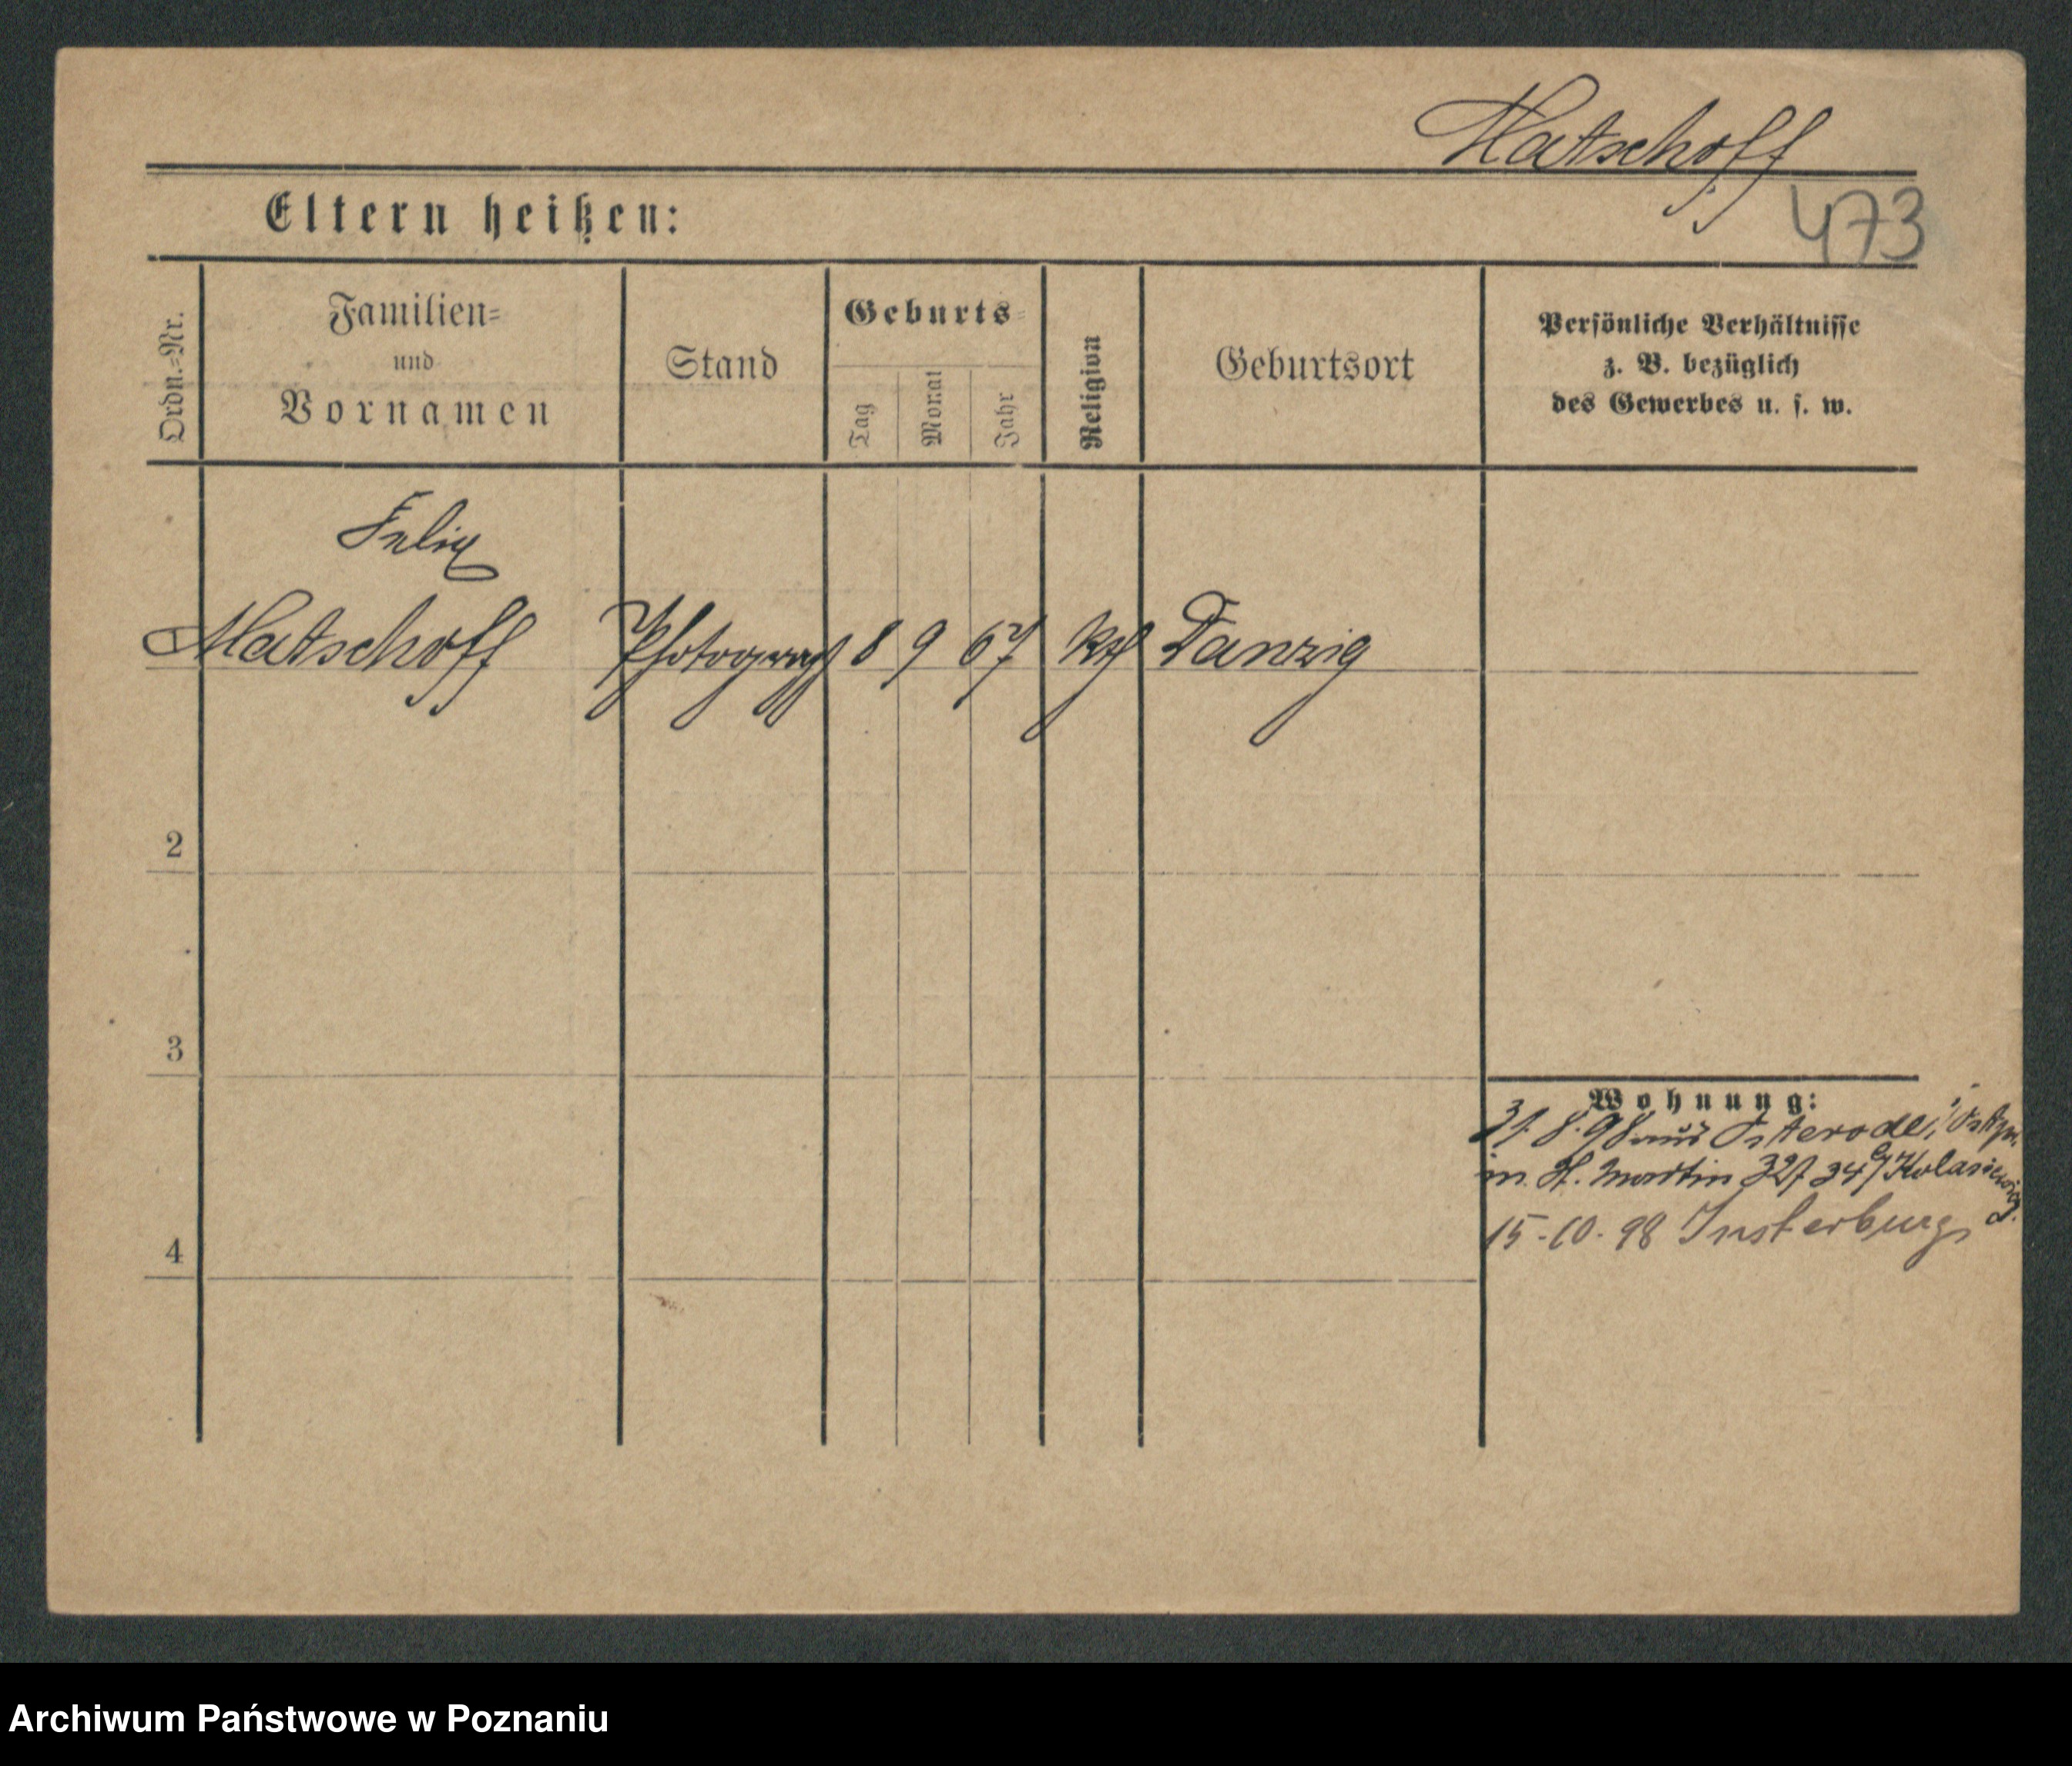 Matschoff
473
Eltern heißen:
Ordn.=Nr.
Familien=
und
Vornamen
Stand
Geburts=
Tag
Monat
Jahr
Religion
Geburtsort
Persönliche Verhältnisse
z. B. bezüglich
des Gewerbes u. s. w.
Felix
Matschoff Photograph 8 9 67 kth Danzig
2
3
4
Wohnung:
31. 8. 98 aus Osterode i/Ostpr.
St. Martin 32/34 Kolasiewicz.
15-10-98 Insterburg
Archiwum Państwowe w Poznaniu